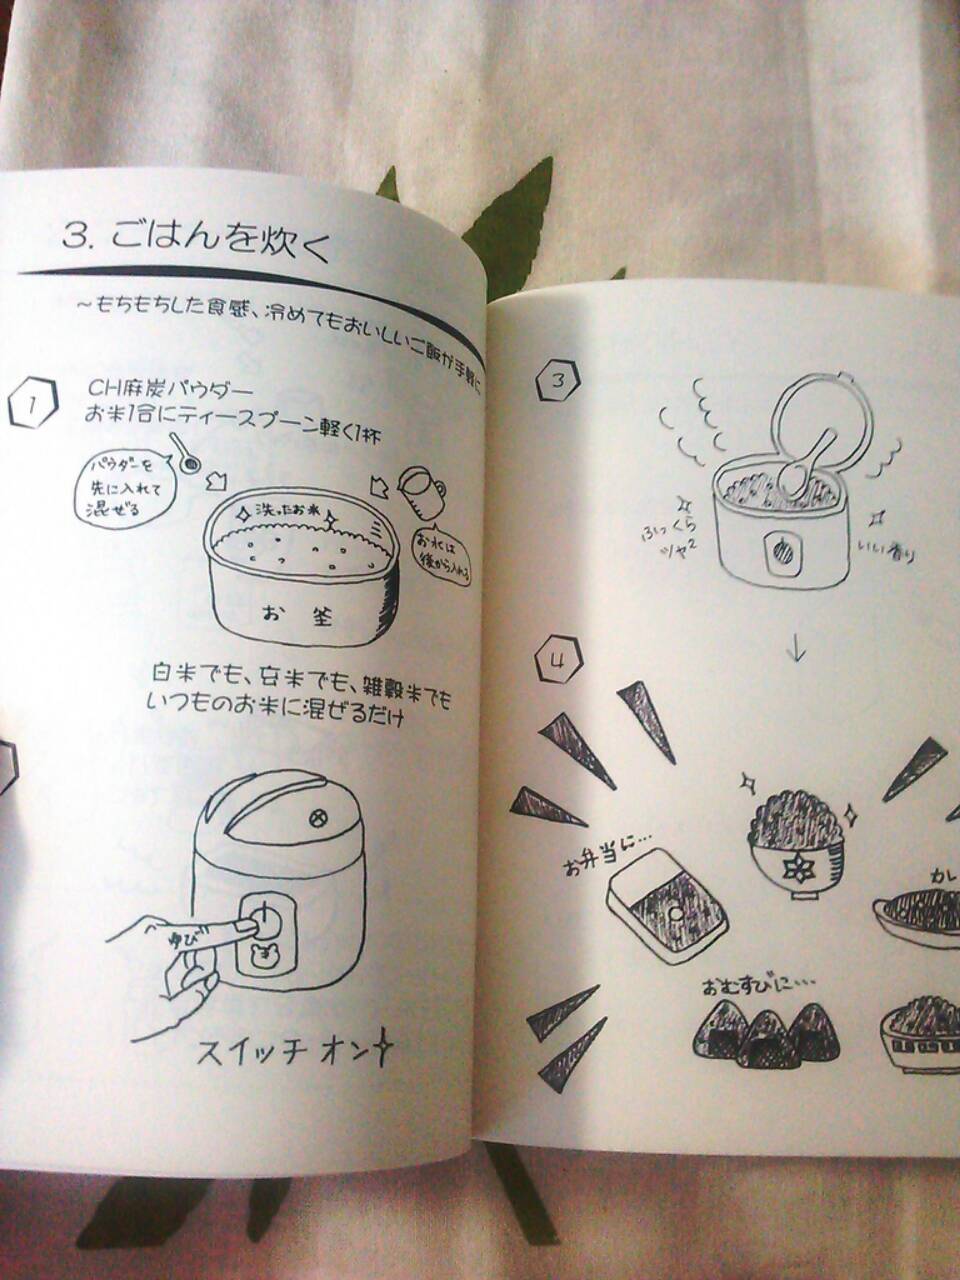 3. ごはんを炊く
～もちもちした食感、冷めてもおいしいご飯が手軽に
1
CH麻炭パウダー
お米1合にティースプーン軽く1杯
パウダーを
先に入れて
混ぜる
洗ったお米
お水は
後から入れる
お釜
白米でも、玄米でも、雑穀米でも
いつものお米に混ぜるだけ
ゆび
スイッチオン
3
ふっくら
ツヤ2
いい香り
4
お弁当に…
カレ
おむすびに…